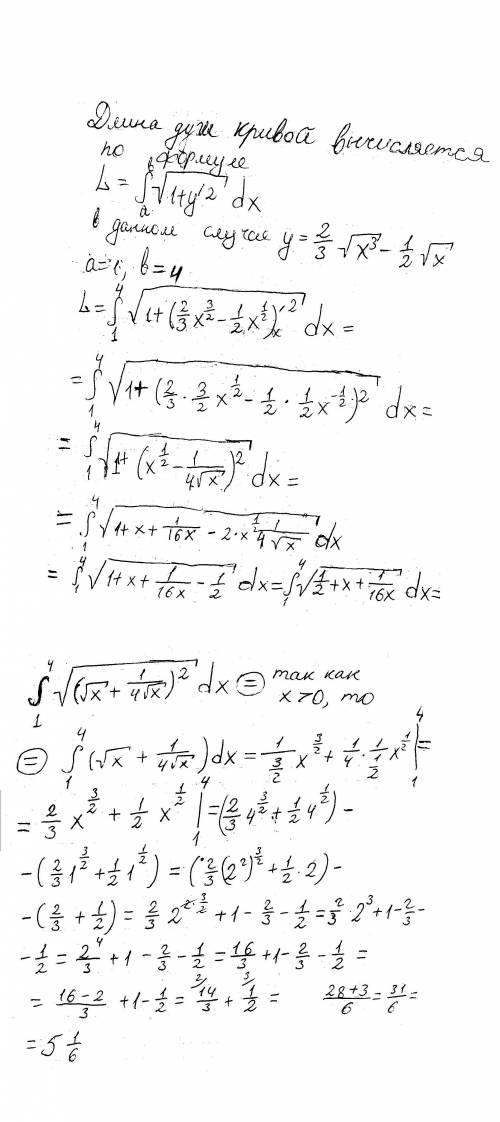 Длина дуги кривой вычисляется
по формуле
L = ∫ₐᵇ √(1+y'²) dx
в данном случае y = 2/3 √x³ − 1/2 √x
a=1, b=4
L = ∫₁⁴ √(1+((2/3 x^(3/2) − 1/2 x^(1/2))'ₓ)²) dx =
= ∫₁⁴ √(1+(2/3 · 3/2 x^(1/2) − 1/2 · 1/2 x^(−1/2))²) dx =
= ∫₁⁴ √(1+(x^(1/2) − 1/(4√x))²) dx =
= ∫₁⁴ √(1+x+1/(16x) − 2·x^(1/2) 1/(4√x)) dx
= ∫₁⁴ √(1+x+1/(16x) − 1/2) dx = ∫₁⁴ √(1/2+x+1/(16x)) dx =
∫₁⁴ √((√x + 1/(4√x))²) dx ⊜ так как
x>0, то
⊜ ∫₁⁴ (√x + 1/(4√x)) dx = 1/(3/2) x^(3/2) + 1/4 · 1/(1/2) x^(1/2) |₁⁴ =
= 2/3 x^(3/2) + 1/2 x^(1/2) |₁⁴ = (2/3 4^(3/2) + 1/2 4^(1/2)) −
− (2/3 1^(3/2) + 1/2 1^(1/2)) = (2/3 (2²)^(3/2) + 1/2 · 2) −
− (2/3 + 1/2) = 2/3 2^(2·3/2) + 1 − 2/3 − 1/2 = 2/3 · 2³ + 1 − 2/3 −
− 1/2 = 2⁴/3 + 1 − 2/3 − 1/2 = 16/3 + 1 − 2/3 − 1/2 =
= (16−2)/3 + 1 − 1/2 = ²⁄14/3 + ³⁄1/2 = (28+3)/6 = 31/6 =
= 5 1/6